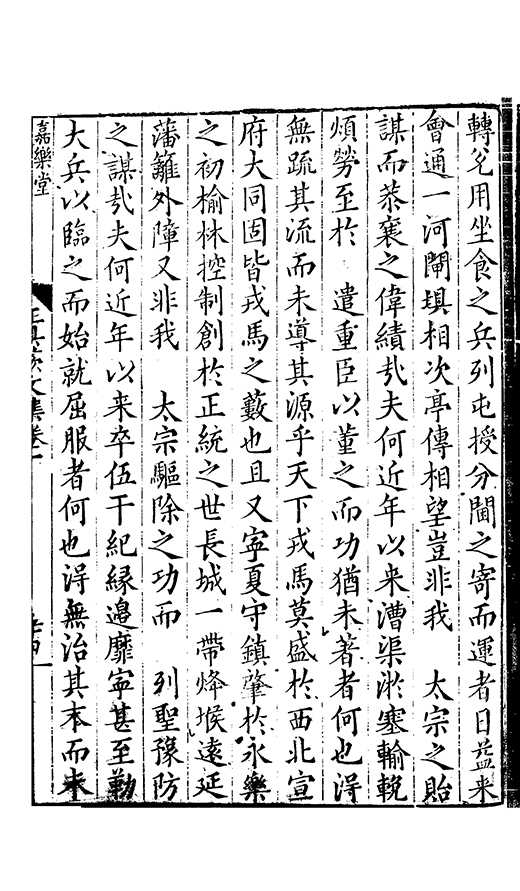 轉兌用坐食之兵列屯授分閫之寄而運者日益来
會通一河閘埧相次亭傳相望豈非我　太宗之貽
謀而恭襄之偉績㢤夫何近年以来漕渠淤塞輸輓
煩勞至於　遣重臣以董之而功猶未著者何也淂
無疏其流而未導其源乎天下戎馬莫盛於西北宣
府大同固皆戎馬之藪也且又寕夏守鎮肇於永樂
之初榆林控制創於正統之世長城一帶烽堠遠延
藩籬外障又非我　太宗驅除之功而　列聖豫防
之謀㢤夫何近年以来卒伍干紀緣邉靡寕甚至勤
大兵以臨之而始就屈服者何也淂無治其本而未
文集卷
嘉樂堂